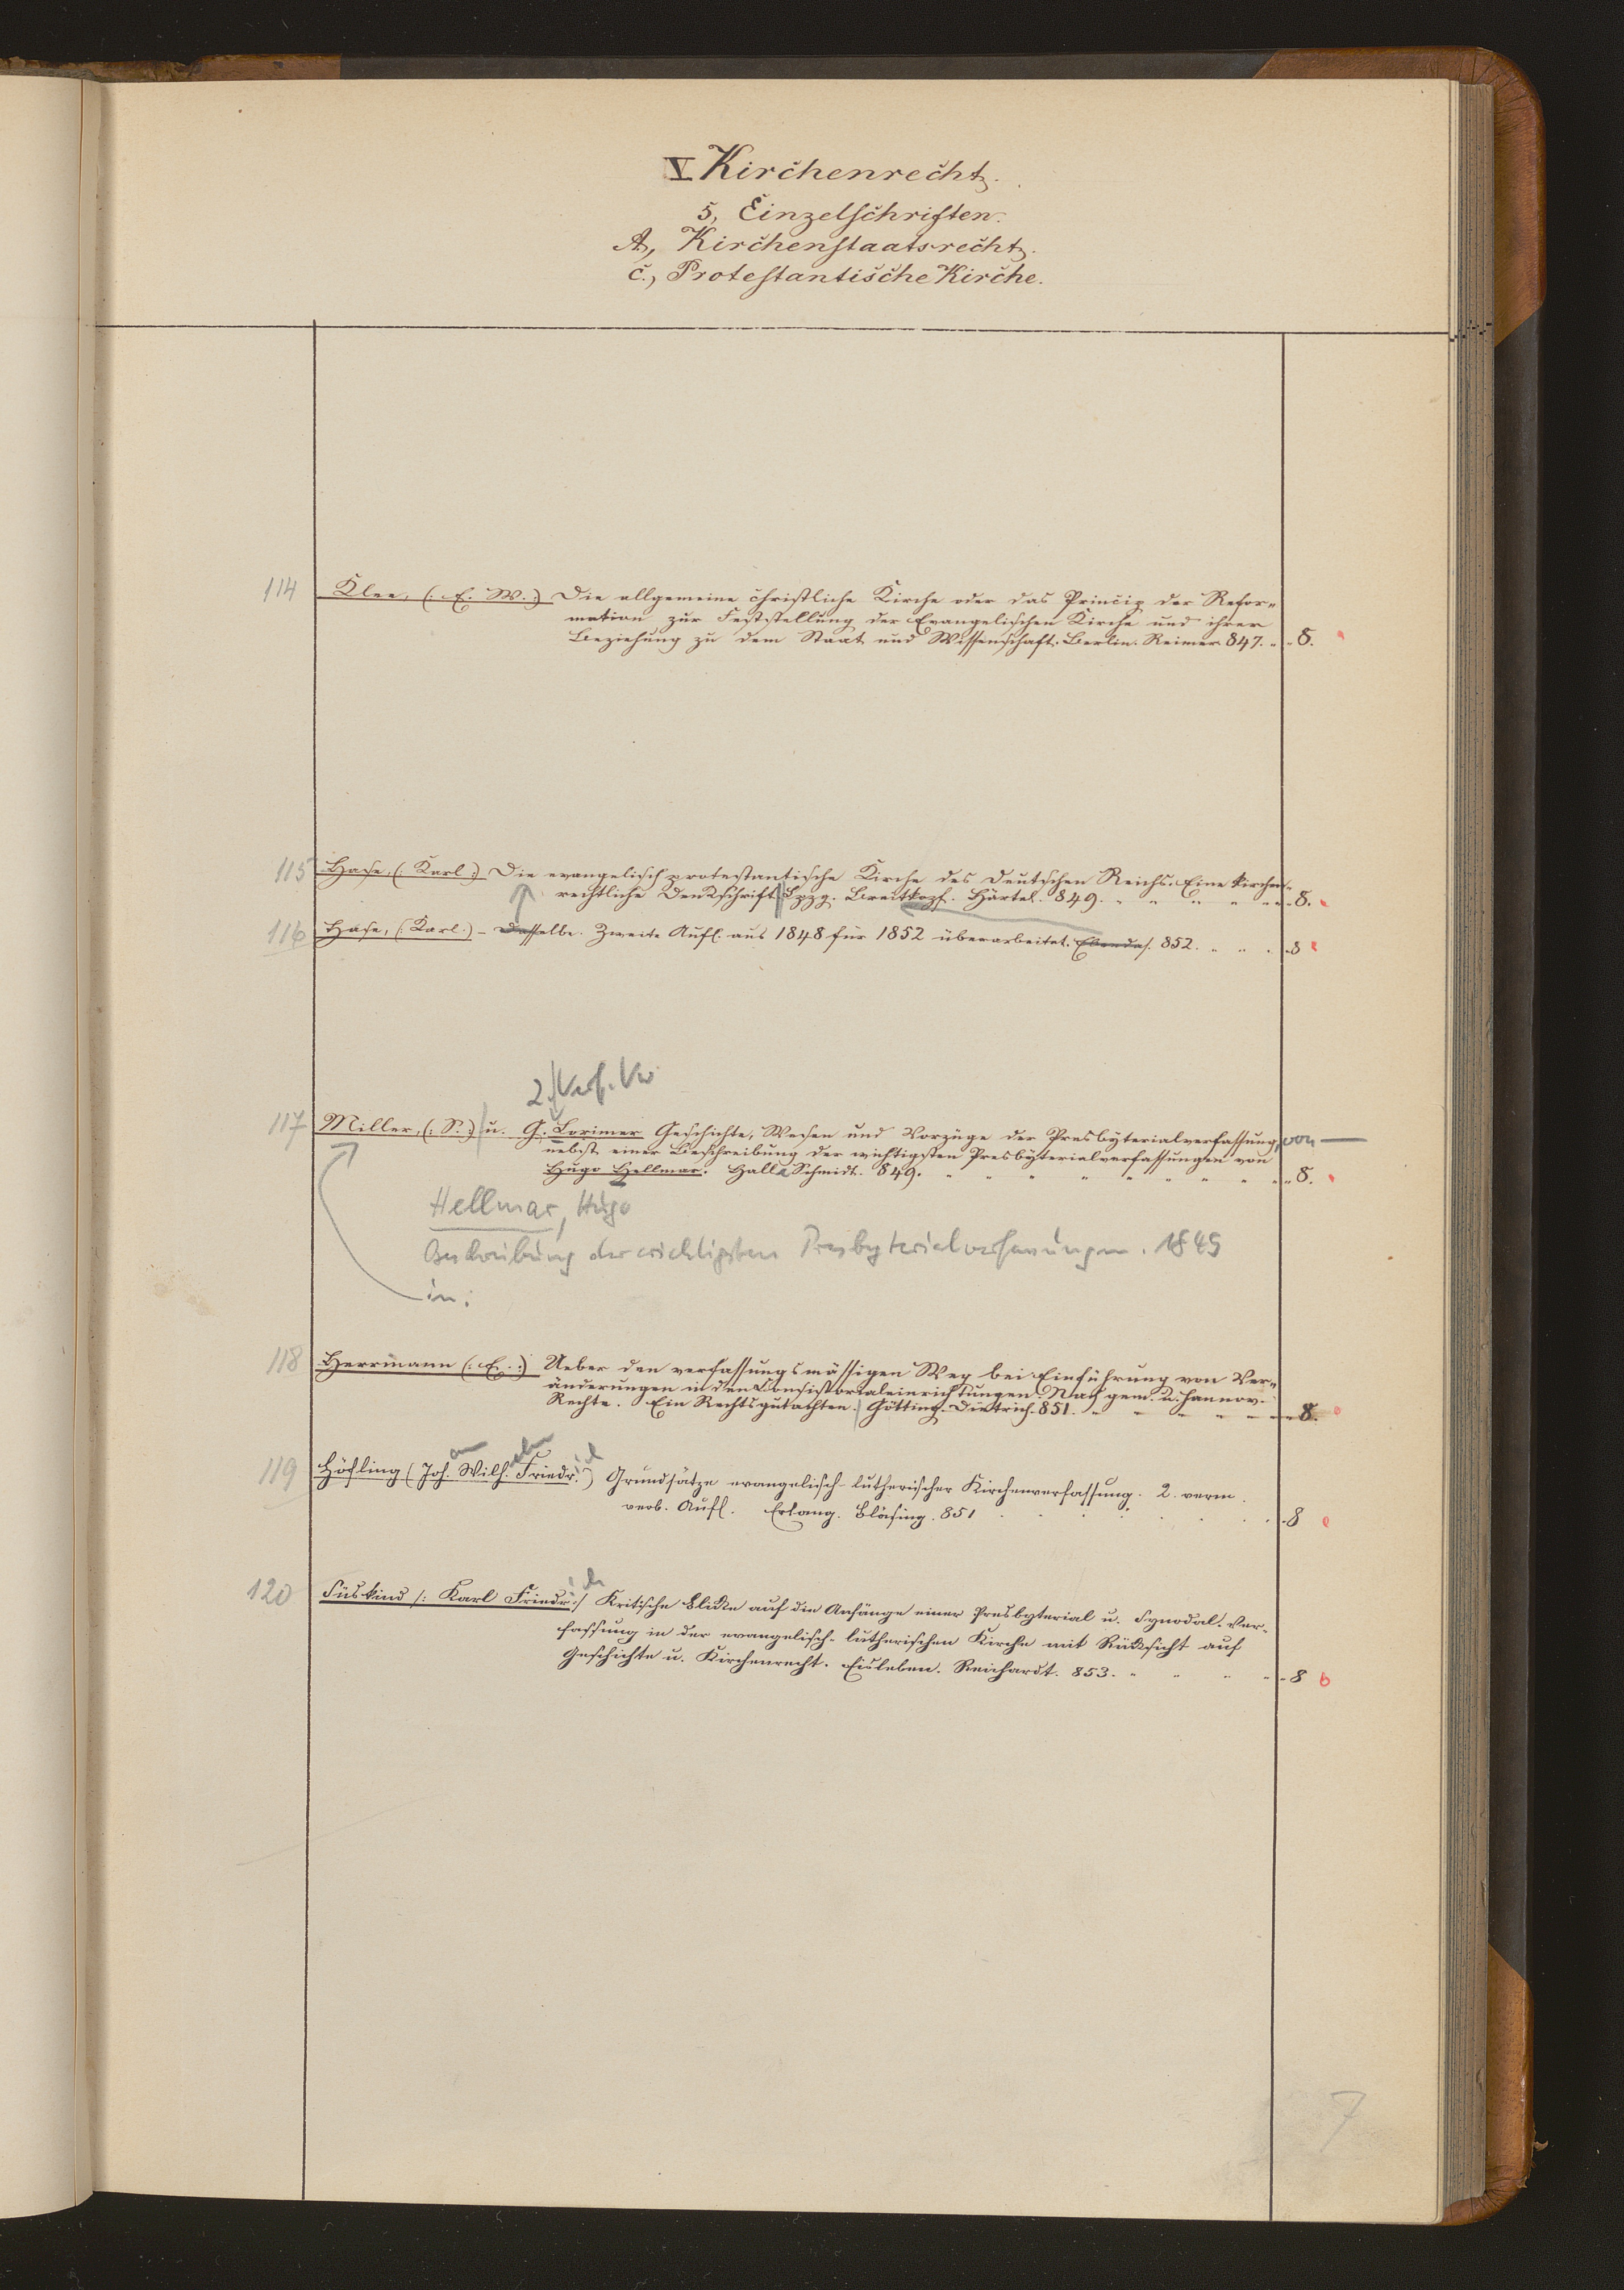 V Kirchenrecht.
5, Einzelschriften.
A, Kirchenstaatsrecht.
c., Protestantische Kirche.
114 Klee, (: E. W. :) Die allgemeine christliche Kirche oder das Princip der Refor-
mation zur Feststellung der Evangelischen Kirche und ihrer
Beziehung zu dem Staat und Wissenschaft. Berlin. Reimer. 847. " " 8.
115 Hase, (: Karl :) Die evangelisch protestantische Kirche des Deutschen Reichs. Eine kirchen-
rechtliche Denkschrift. Lpzg. Breitkopf. Härtel. 849. " " " " " " 8.
116 Hase, (: Karl :) - Dasselbe. Zweite Aufl. aus 1848 für 1852 überarbeitet. Ebendas. 852. " " " 8
2. Verf. Vw
117 Miller, (: S. :) u. G. Lorimer Geschichte, Wesen und Vorzüge der Presbyterialverfassung, von —
nebst einer Beschreibung der wichtigsten Presbyterialverfassungen von
Hugo Hellmar. Halle Schmidt. 849. " " " " " " " " " " 8.
Hellmar, Hugo
Beschreibung der wichtigsten Presbyterialverfassungen. 1849
in:
118 Herrmann (: E. :) Ueber den verfassungsmässigen Weg bei Einführung von Ver-
änderungen in den Consistorialeinrichtungen. Nach gem. u. hannov.
Rechte. Ein Rechtsgutachten. Götting. Dietrich. 851. " " " " " " 8.
ann elm ich
119 Höfling (Joh. Wilh. Friedr.) Grundsätze evangelisch-lutherischer Kirchenverfassung. 2. verm.
verb. Aufl. Erlang. Bläsing. 851 . . . . . . . . 8
ich
120 Süskind /: Karl Friedr :/ Kritische Blicke auf die Anfänge einer Presbyterial u. Synodal-Ver-
fassung in der evangelisch-lutherischen Kirche mit Rücksicht auf
Geschichte u. Kirchenrecht. Eisleben. Reichardt. 853. " " " " " 8
7